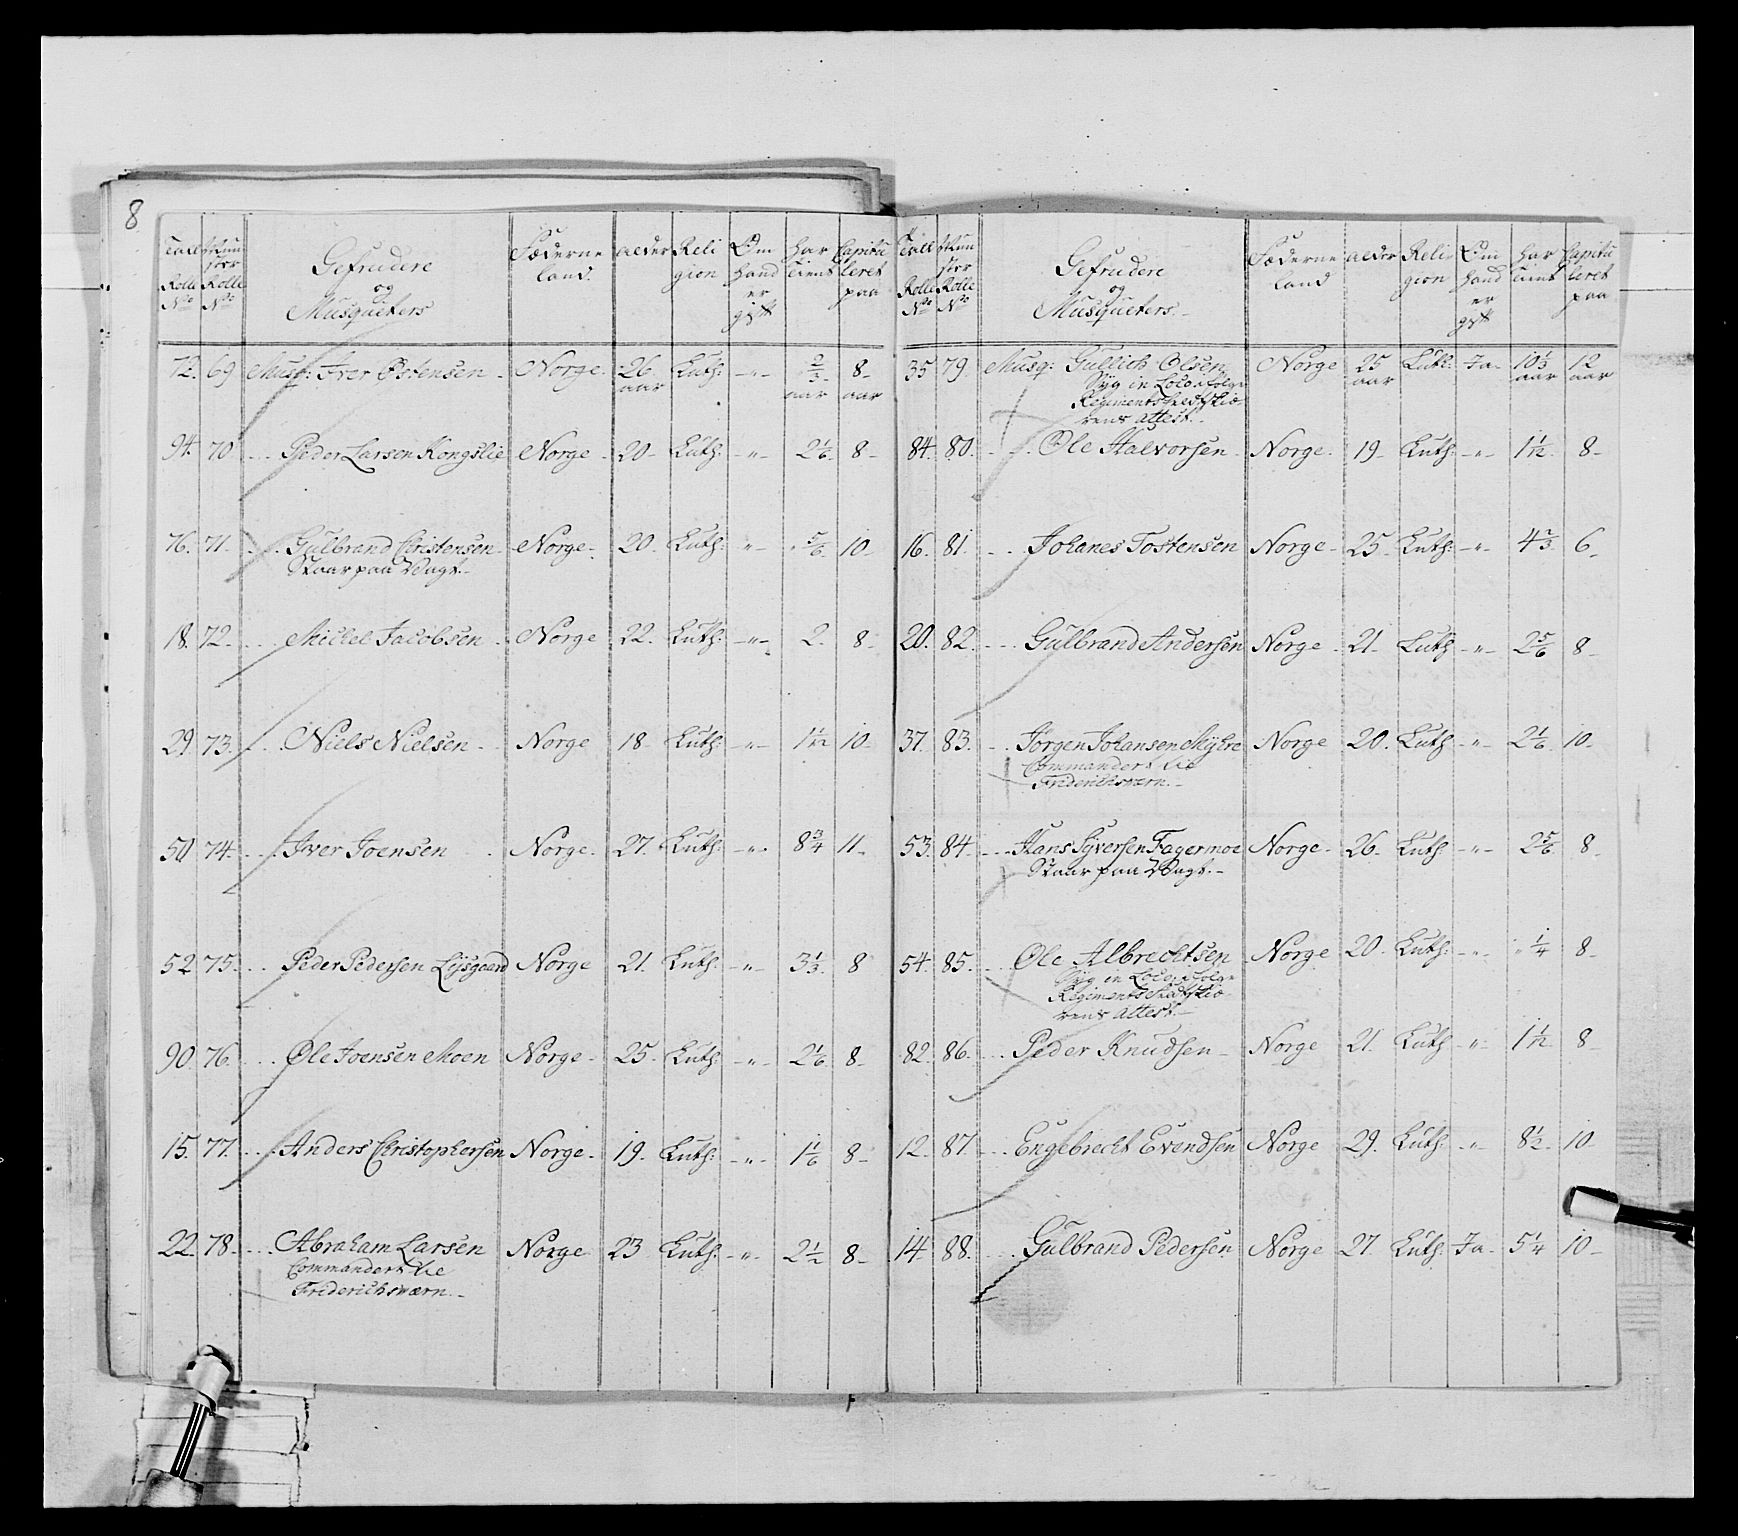 8
Tall Rolle No | Mun ster Rolle No | Gefrudere og Musqueters | Føderne land. | alder | Reli gion | Om hand er gift | har tient | Capitu leret paa
72. 69 Musq: Iver Østensen. Norge. 26 aar Luth: -"- 2/3 aar 8 aar
94. 70 ... Peder Larsen Kongslie Norge 20 Luth: -"- 2 1/6. 8
76. 71. ... Gulbrand Christensen. Norge. 20. Luth: "- " 5/6 10
Staar paa Vagt.
18. 72. ... Michel Jacobsen Norge 22. Luth: -"- 2. 8
29. 73. ... Niels Nielsen Norge 18 Luth: "- 1 1/12 10
50 74. ... Iver Joensen Norge. 27. Luth: -"- 8 3/4 11
52 75. ... Peder Pedersen Lysgaard Norge 21. Luth: -"- 3 1/3. 8
90. 76. ... Ole Joensen Moen Norge 25. Luth: -"- 2 1/6. 8
15. 77. ... Anders Christophersen Norge. 19. Luth: -"- 1 1/6 8
22. 78. ... Abraham Larsen Norge 23 Luth: -"- 2 1/2 8
Commandert til
Friderichsværn.
Tall Rolle No | Mun ster Rolle No | Gefrudere og Musqueters. | Føderne land | alder | Reli gion | Om hand er gift | har tient | Capitu leret paa
35 79. Musq: Gullich Olsen Norge 25 aar Luth: Ja 10 1/3 aar 12 aar
Syg in Loco efolge
Regiments
attest.
84. 80. ... Ole Halvorsen Norge. 19 Luth: -"- 1 1/12. 8
16. 81. ... Johanes Tostensen Norge 25 Luth: -"- 4 2/3 6
20. 82. ... Gulbrand Andersen Norge 21 Luth -"- 2 5/6 8
37. 83. ... Jørgen Johansen Myhre Norge 20. Luth -"- 2 1/6 10
Commandert til
Friderichsværn.
53. 84. ... Hans Syversen Fagermoe Norge 26. Luth -"- 2 5/6 8
Staar paa Vagt.
54. 85. ... Ole Albrechtsen Norge 20. Luth: -"- " 1/4 8
Syg in Loco efolge
Regiments
attest.
82. 86. ... Peder Knudsen Norge 21. Luth -"- 1 1/12. 8
12. 87. ... Engebrecht Evendsen Norge 29. Luth -"- 8 1/2 10
14. 88. ... Gulbrand Pedersen Norge 27. Luth Ja 5 1/4 10